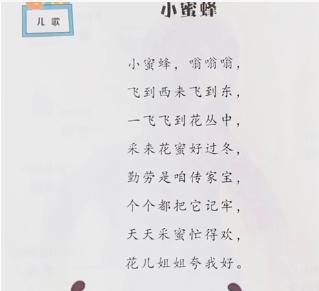 小蜜蜂
儿歌
小蜜蜂，嗡嗡嗡，
飞到西来飞到东，
一飞飞到花丛中，
采来花蜜好过冬，
勤劳是咱传家宝，
个个都把它记牢，
天天采蜜忙得欢，
花儿姐姐夸我好。